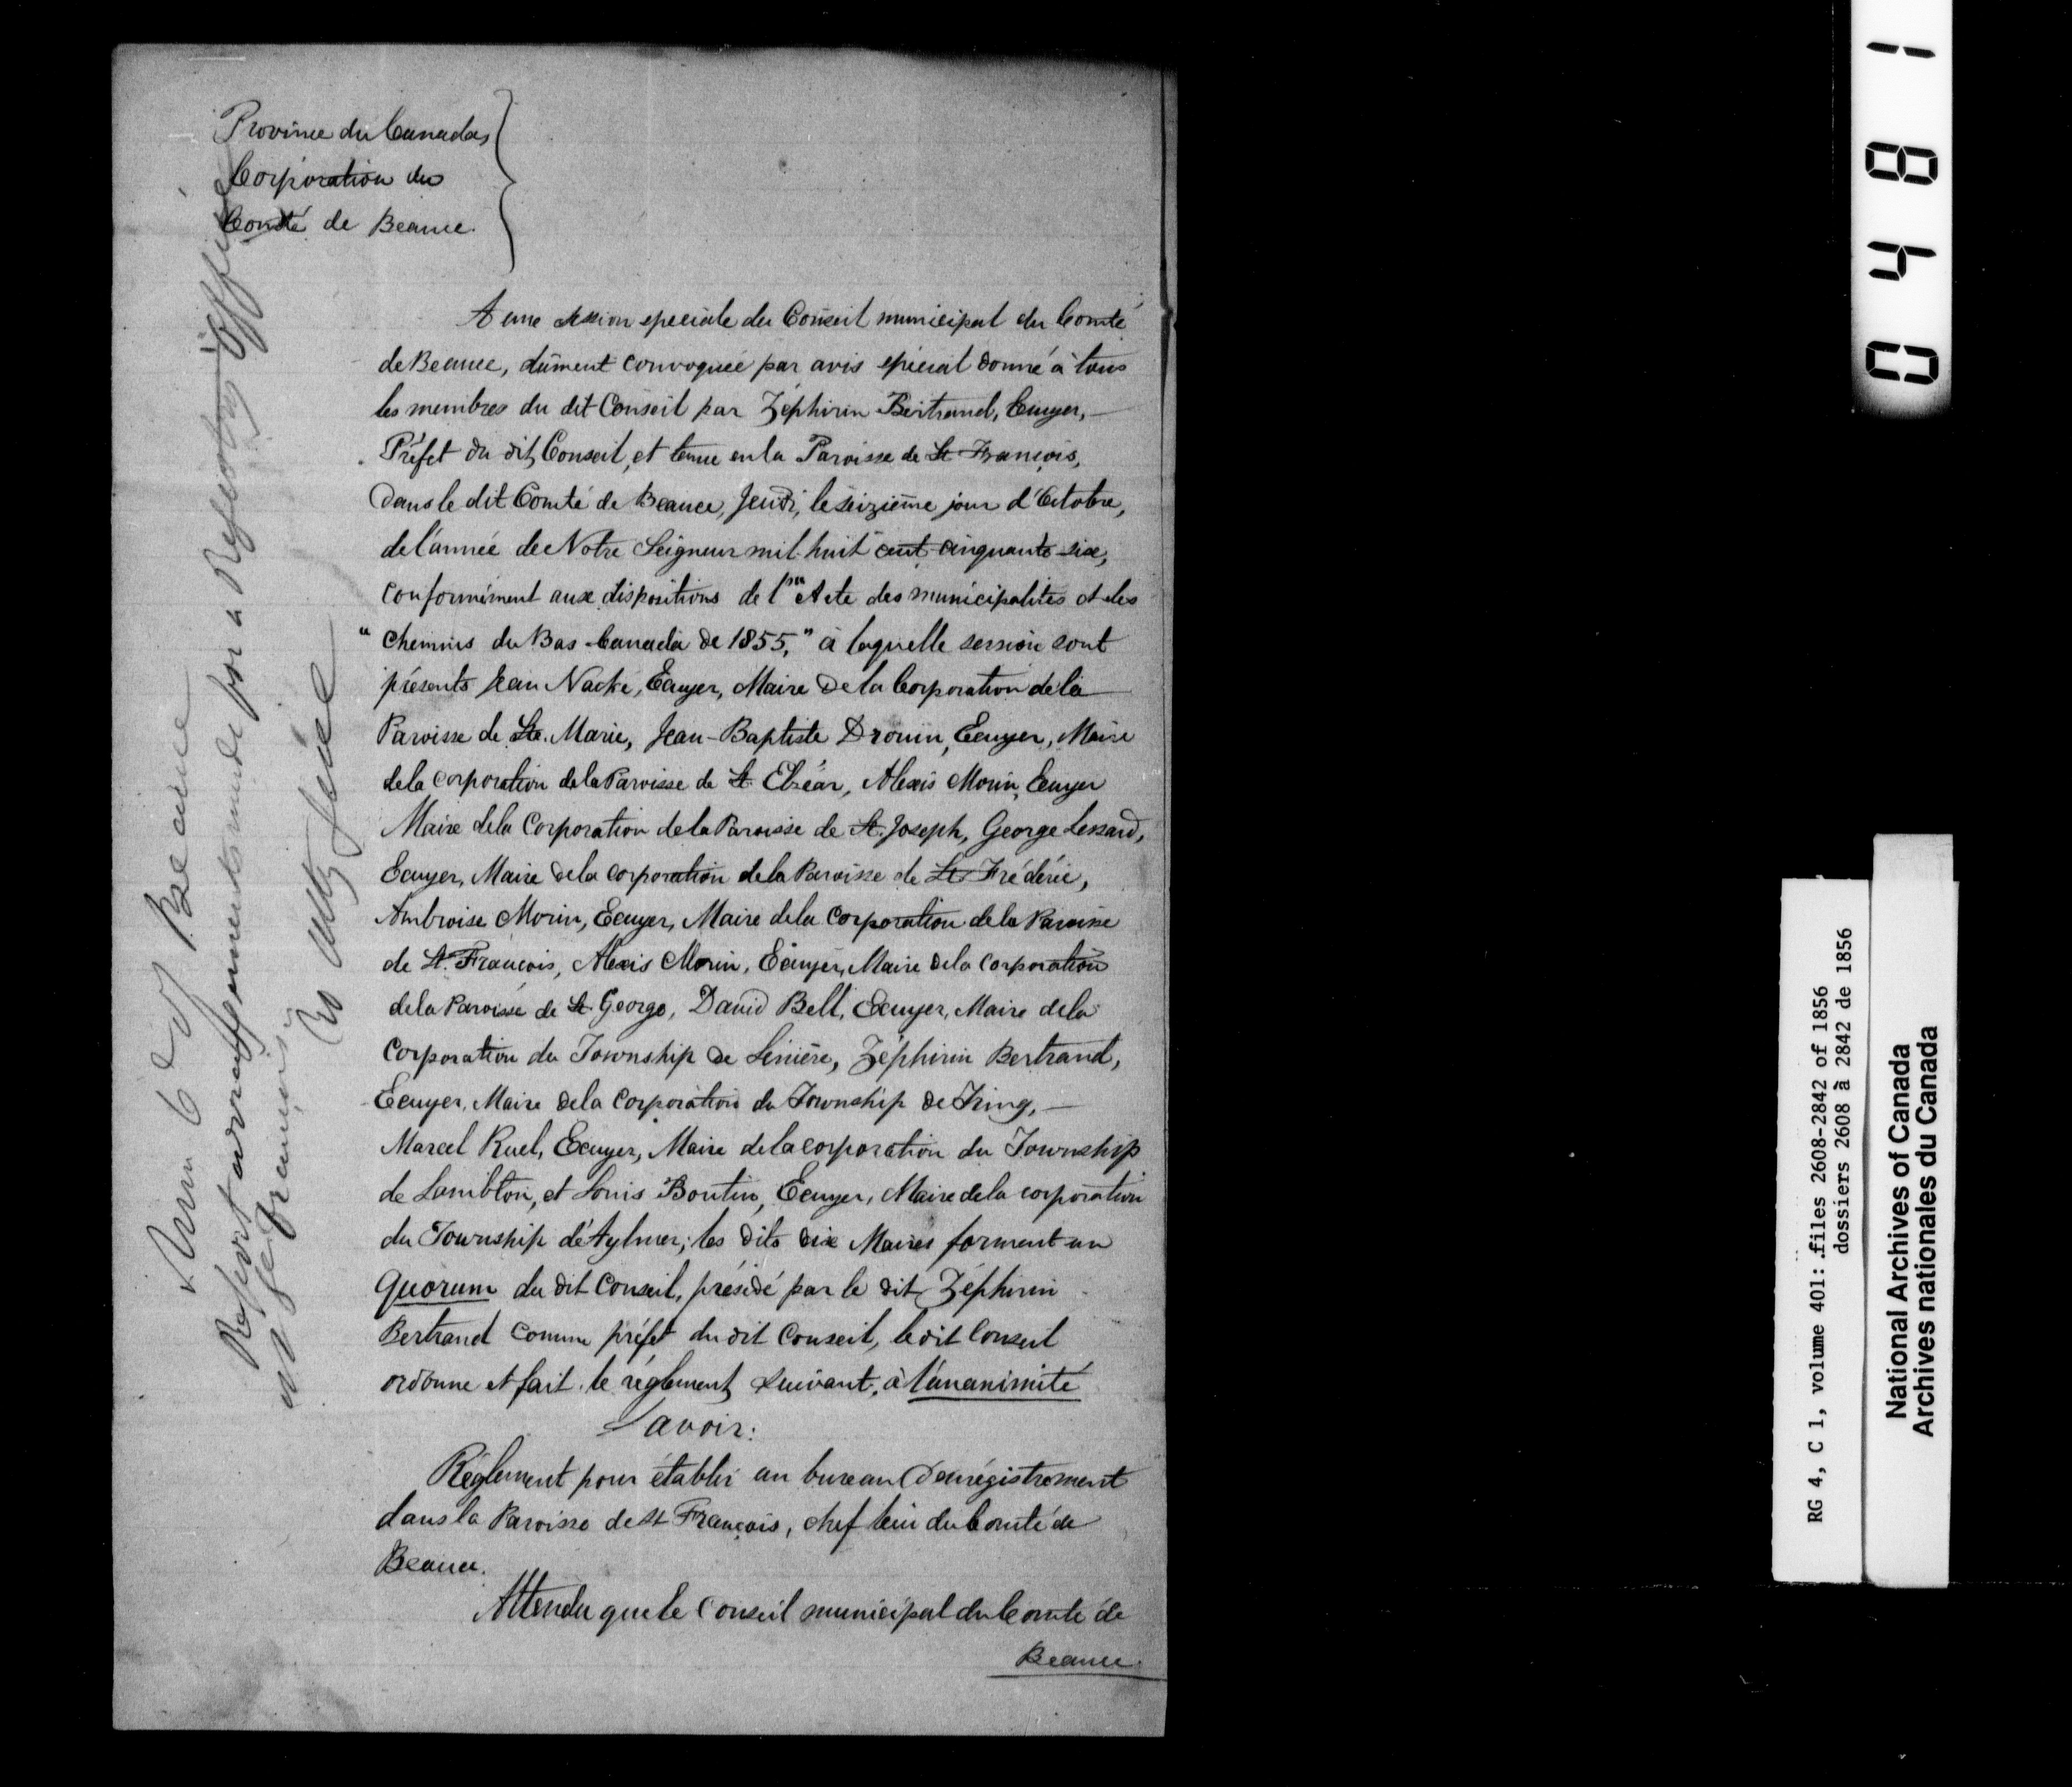 Province du Canada,
Corporation du
Comté de Beauce.
A une session speciale du Conseil municipal du Comté
de Beauce, dûment convoquée par avis spécial donné à tous
les membres du dit Conseil par Zéphirin Bertrand, Ecuyer,
Préfet du dit Conseil, et tenue en la Paroisse de St François,
dans le dit Comté de Beauce, Jeudi, le seizième jour d'Octobre,
de l'année de Notre Seigneur mil-huit cent-cinquante-six,
conformément aux dispositions de l'" Acte des municipalités et des
" chemins du Bas-Canada de 1855," à laquelle session sont
présents Jean Nacke, Ecuyer, Maire de la Corporation de la
Paroisse de Ste. Marie, Jean-Baptiste Drouin, Ecuyer, Maire
de la corporation de la Paroisse de St. Elzéar, Alexis Morin, Ecuyer
Maire de la Corporation de la Paroisse de St. Joseph, George Lessard,
Ecuyer, Maire de la corporation de la Paroisse de St Frédéric,
Ambroise Morin, Ecuyer, Maire de la corporation de la Paroisse
de St. François, Alexis Morin, Ecuyer, Maire de la corporation
de la Paroisse de St. George, David Bell, Ecuyer, Maire de la
Corporation du Township de Linière, Zéphirin Bertrand,
Ecuyer, Maire de la corporation du Township de Tring,
Marcel Ruel, Ecuyer, Maire de la corporation du Township
de Lambton, et Louis Boutin, Ecuyer, Maire de la corporation
du Township d'Aylmer; les dits dix Maires forment un
Quorum du dit Conseil, présidé par le dit Zéphirin
Bertrand comme préfet du dit Conseil, le dit Conseil
ordonne et fait le règlement suivant, à l'unanimité
Savoir:
Règlement pour établir un bureau d'enrégistrement
dans la Paroisse de St François, chef lieu du Comté de
Beauce.
Attendu que le Conseil municipal du Comté de
Beauce
Co of Beauce
Report arrangements made for a Registry Office
at St François
0481
RG 4, C 1, volume 401: files 2608-2842 of 1856
dossiers 2608 à 2842 de 1856
National Archives of Canada
Archives nationales du Canada